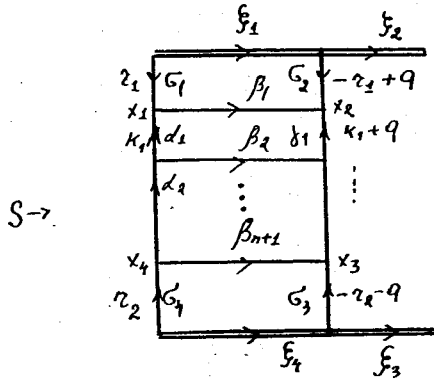 ξ₁ ξ₂
r₁ σ₁ σ₂ -r₁+q
x₁ β₁ x₂
κ₁ α₁ β₂ γ₁ κ₁+q
S→ α₂
βₙ₊₁
x₄ x₃
r₂ σ₄ σ₃ -r₂-q
ξ₄ ξ₃